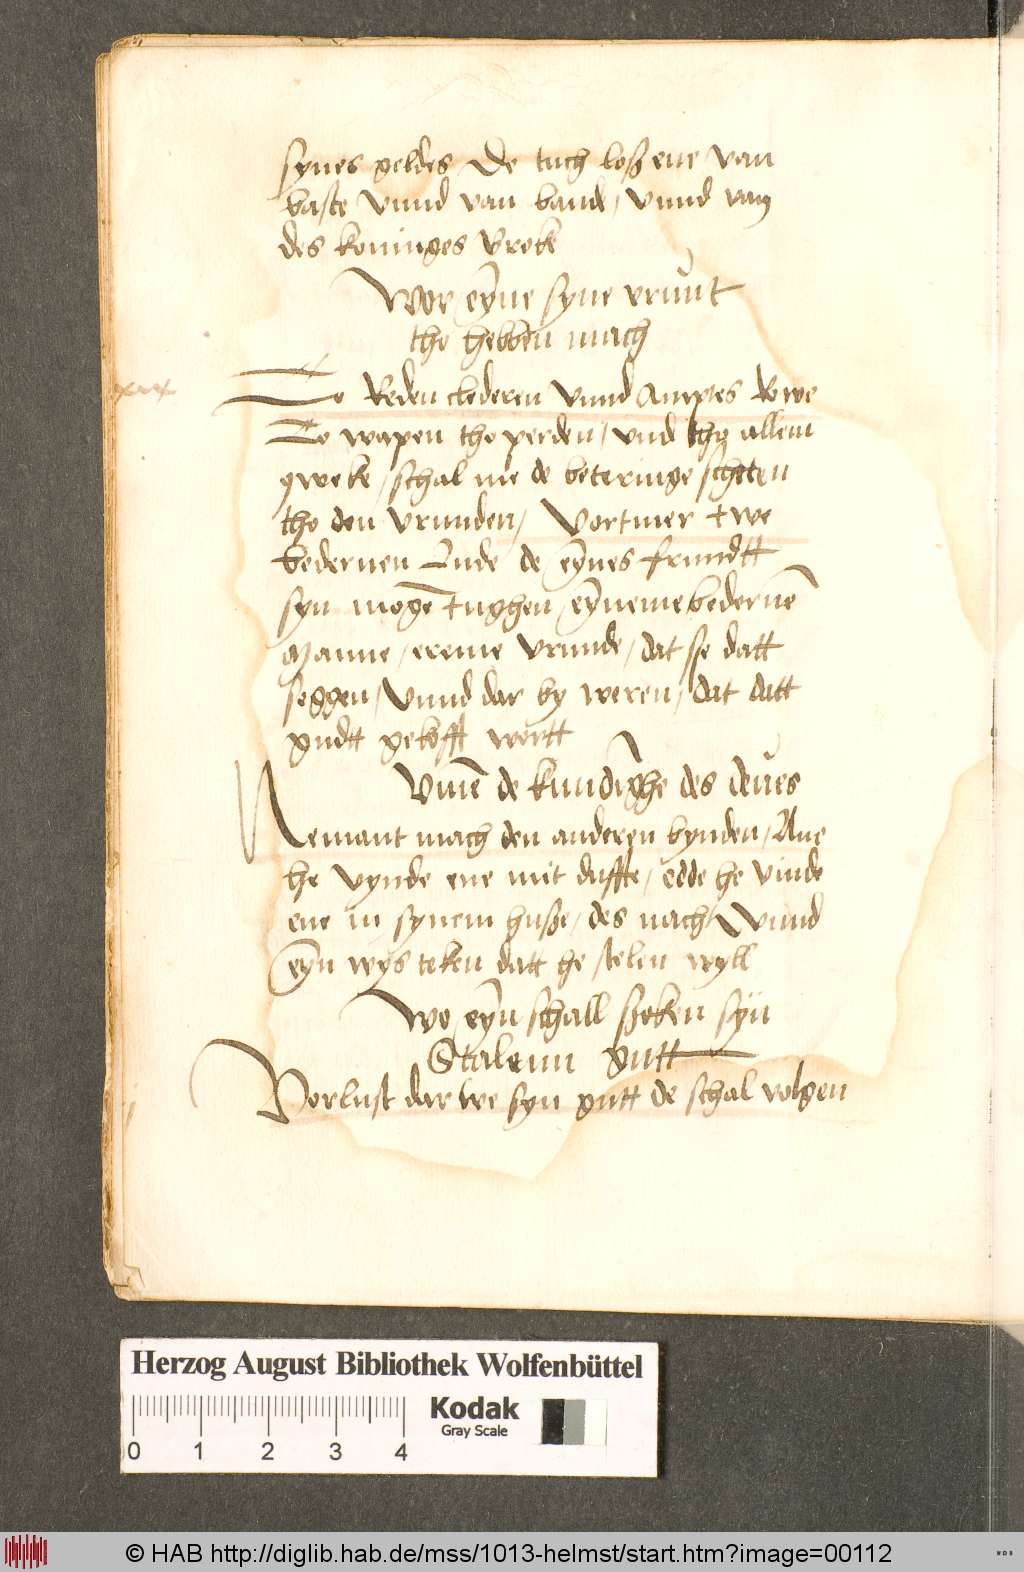 synes geldes De tuch loß ene van
baste vnnd van bande, vnnd van
des koninges broke
Wor eyne syne vrunt
tho hebben mach
xxx
To Reden clederen vnnd Amptes Rowe
To wapen tho perden, vnde tho allem
qweke, schal me de beteringe scheten
tho den vrunden, Vortmer twe
bederuen Lude de eynes frundtt
syn mogē tughen, eyneme bederuē
Manne, ereme vrunde, dat sse datt
seggen, vnnd dar by weren, dat datt
gudtt gekofft wertt
Vmē de kundighe des deues
Nemant mach den anderen bynden, Ane
he vynde ene mit duffte, edde he vinde
ene in synem huße, des nach, Vnnd
eyn wys teken datt he stelen wyll
Wo eyn schall ßoken syn
Stalenn gutt
Vorlust dar we syn gutt de schal volgen
Herzog August Bibliothek Wolfenbüttel
0 1 2 3 4
Kodak
Gray Scale
© HAB http://diglib.hab.de/mss/1013-helmst/start.htm?image=00112